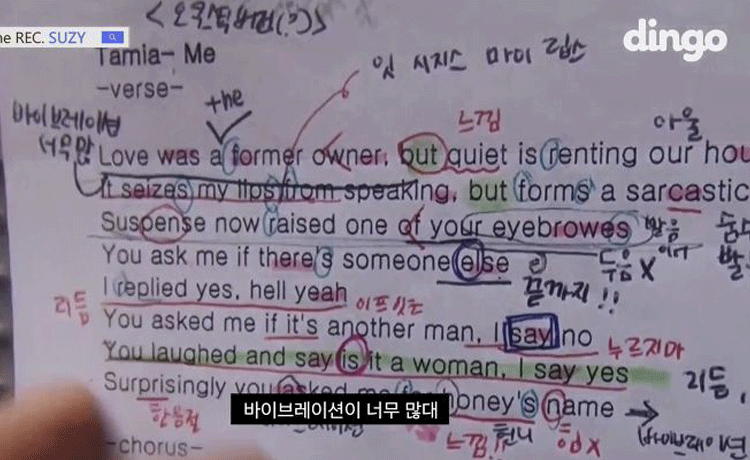 ne REC. SUZY
dingo
<오르막버전(?)>
Tamia- Me
-verse-
잇 시지스 마이 립스
바이브레이션
너무 많
+the
느낌
아울
Love was a former owner, but quiet is renting our hou
It seizes my lips from speaking, but forms a sarcastic
Suspense now raised one of your eyebrowes
발음
You ask me if there's someone else
끝까지!!
두음X
I replied yes, hell yeah
리듬
You asked me if it's another man, I say no
누르지마
You laughed and say is it a woman, I say yes
리듬,
Surprisingly you asked me honey's name
한음절
느낌!
바이브레이션이 너무 많대
-chorus-